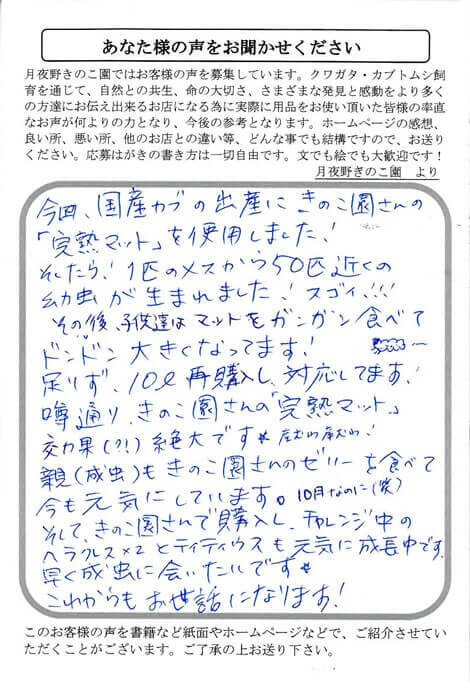 あなた様の声をお聞かせください
月夜野きのこ園ではお客様の声を募集しています。クワガタ・カブトムシ飼
育を通じて、自然との共生、命の大切さ、さまざまな発見と感動をより多く
の方達にお伝え出来るお店になる為に実際に用品をお使い頂いた皆様の率直
なお声が何よりの力となり、今後の参考となります。ホームページの感想、
良い所、悪い所、他のお店との違い等、どんな事でも結構ですので、お送り
ください。応募はがきの書き方は一切自由です。文でも絵でも大歓迎です！
月夜野きのこ園　より
今回、国産カブの出産にきのこ園さんの
「完熟マット」を使用しました！
そしたら！1匹のメスから50匹近くの
幼虫が生まれました！スゴイ!!!
その後、子供達はマットをガンガン食べて
ドンドン大きくなってます！
足りず、10ℓ再購入し、対応してます！
噂通り、きのこ園さんの「完熟マット」
効果(?!)絶大です☆
親(成虫)もきのこ園さんのゼリーを食べて
今も元気にしています。10月なのに(笑)
そして、きのこ園さんで購入し、チャレンジ中の
ヘラクレス×2とティティウスも元気に成長中です。
早く成虫に会いたいです☆
これからもお世話になります！
このお客様の声を書籍など紙面やホームページなどで、ご紹介させてい
ただくことがございます。ご了承の上お送り下さい。